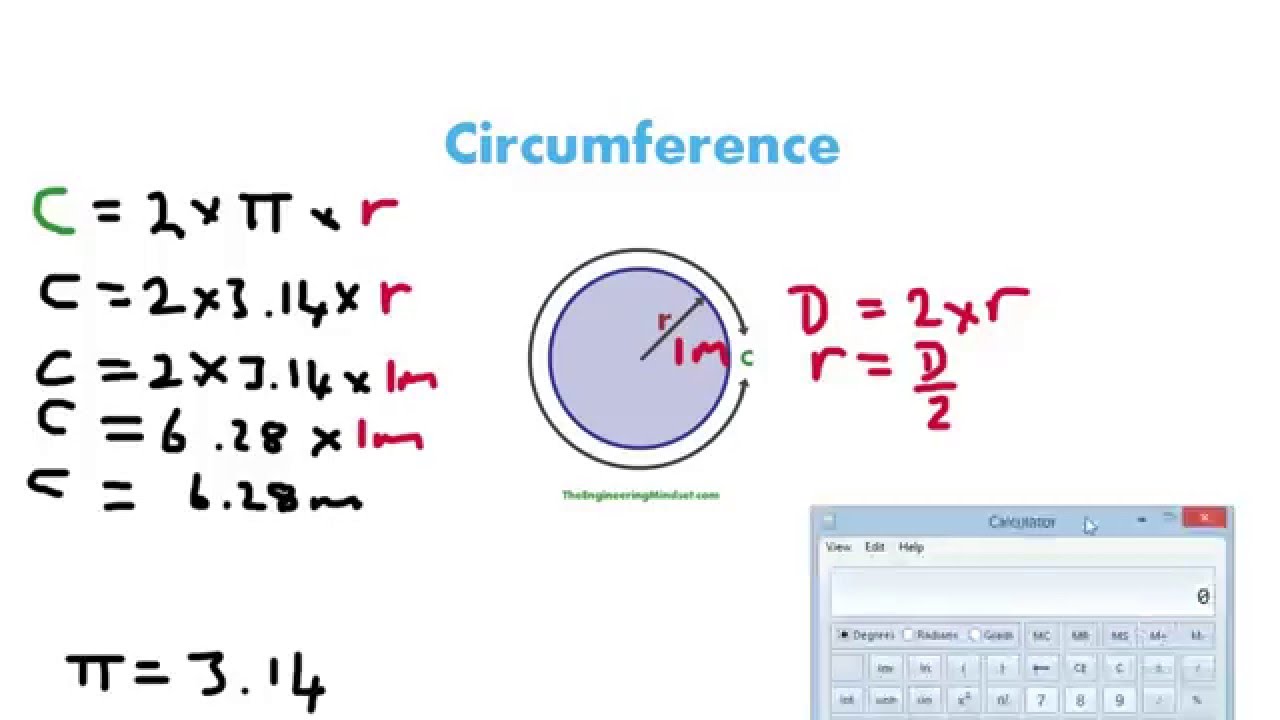 Circumference
C = 2 × π × r
C = 2 × 3.14 × r
C = 2 × 3.14 × 1m
C = 6.28 × 1m
C = 6.28m
π = 3.14
r
1m
C
D = 2 × r
r = D/2
TheEngineeringMindset.com
Calculator
View Edit Help
0
Degrees Radians Grads MC MR MS M+ M-
Inv ln ( ) ← CE C ±
Int sinh sin x² n! 7 8 9 / %